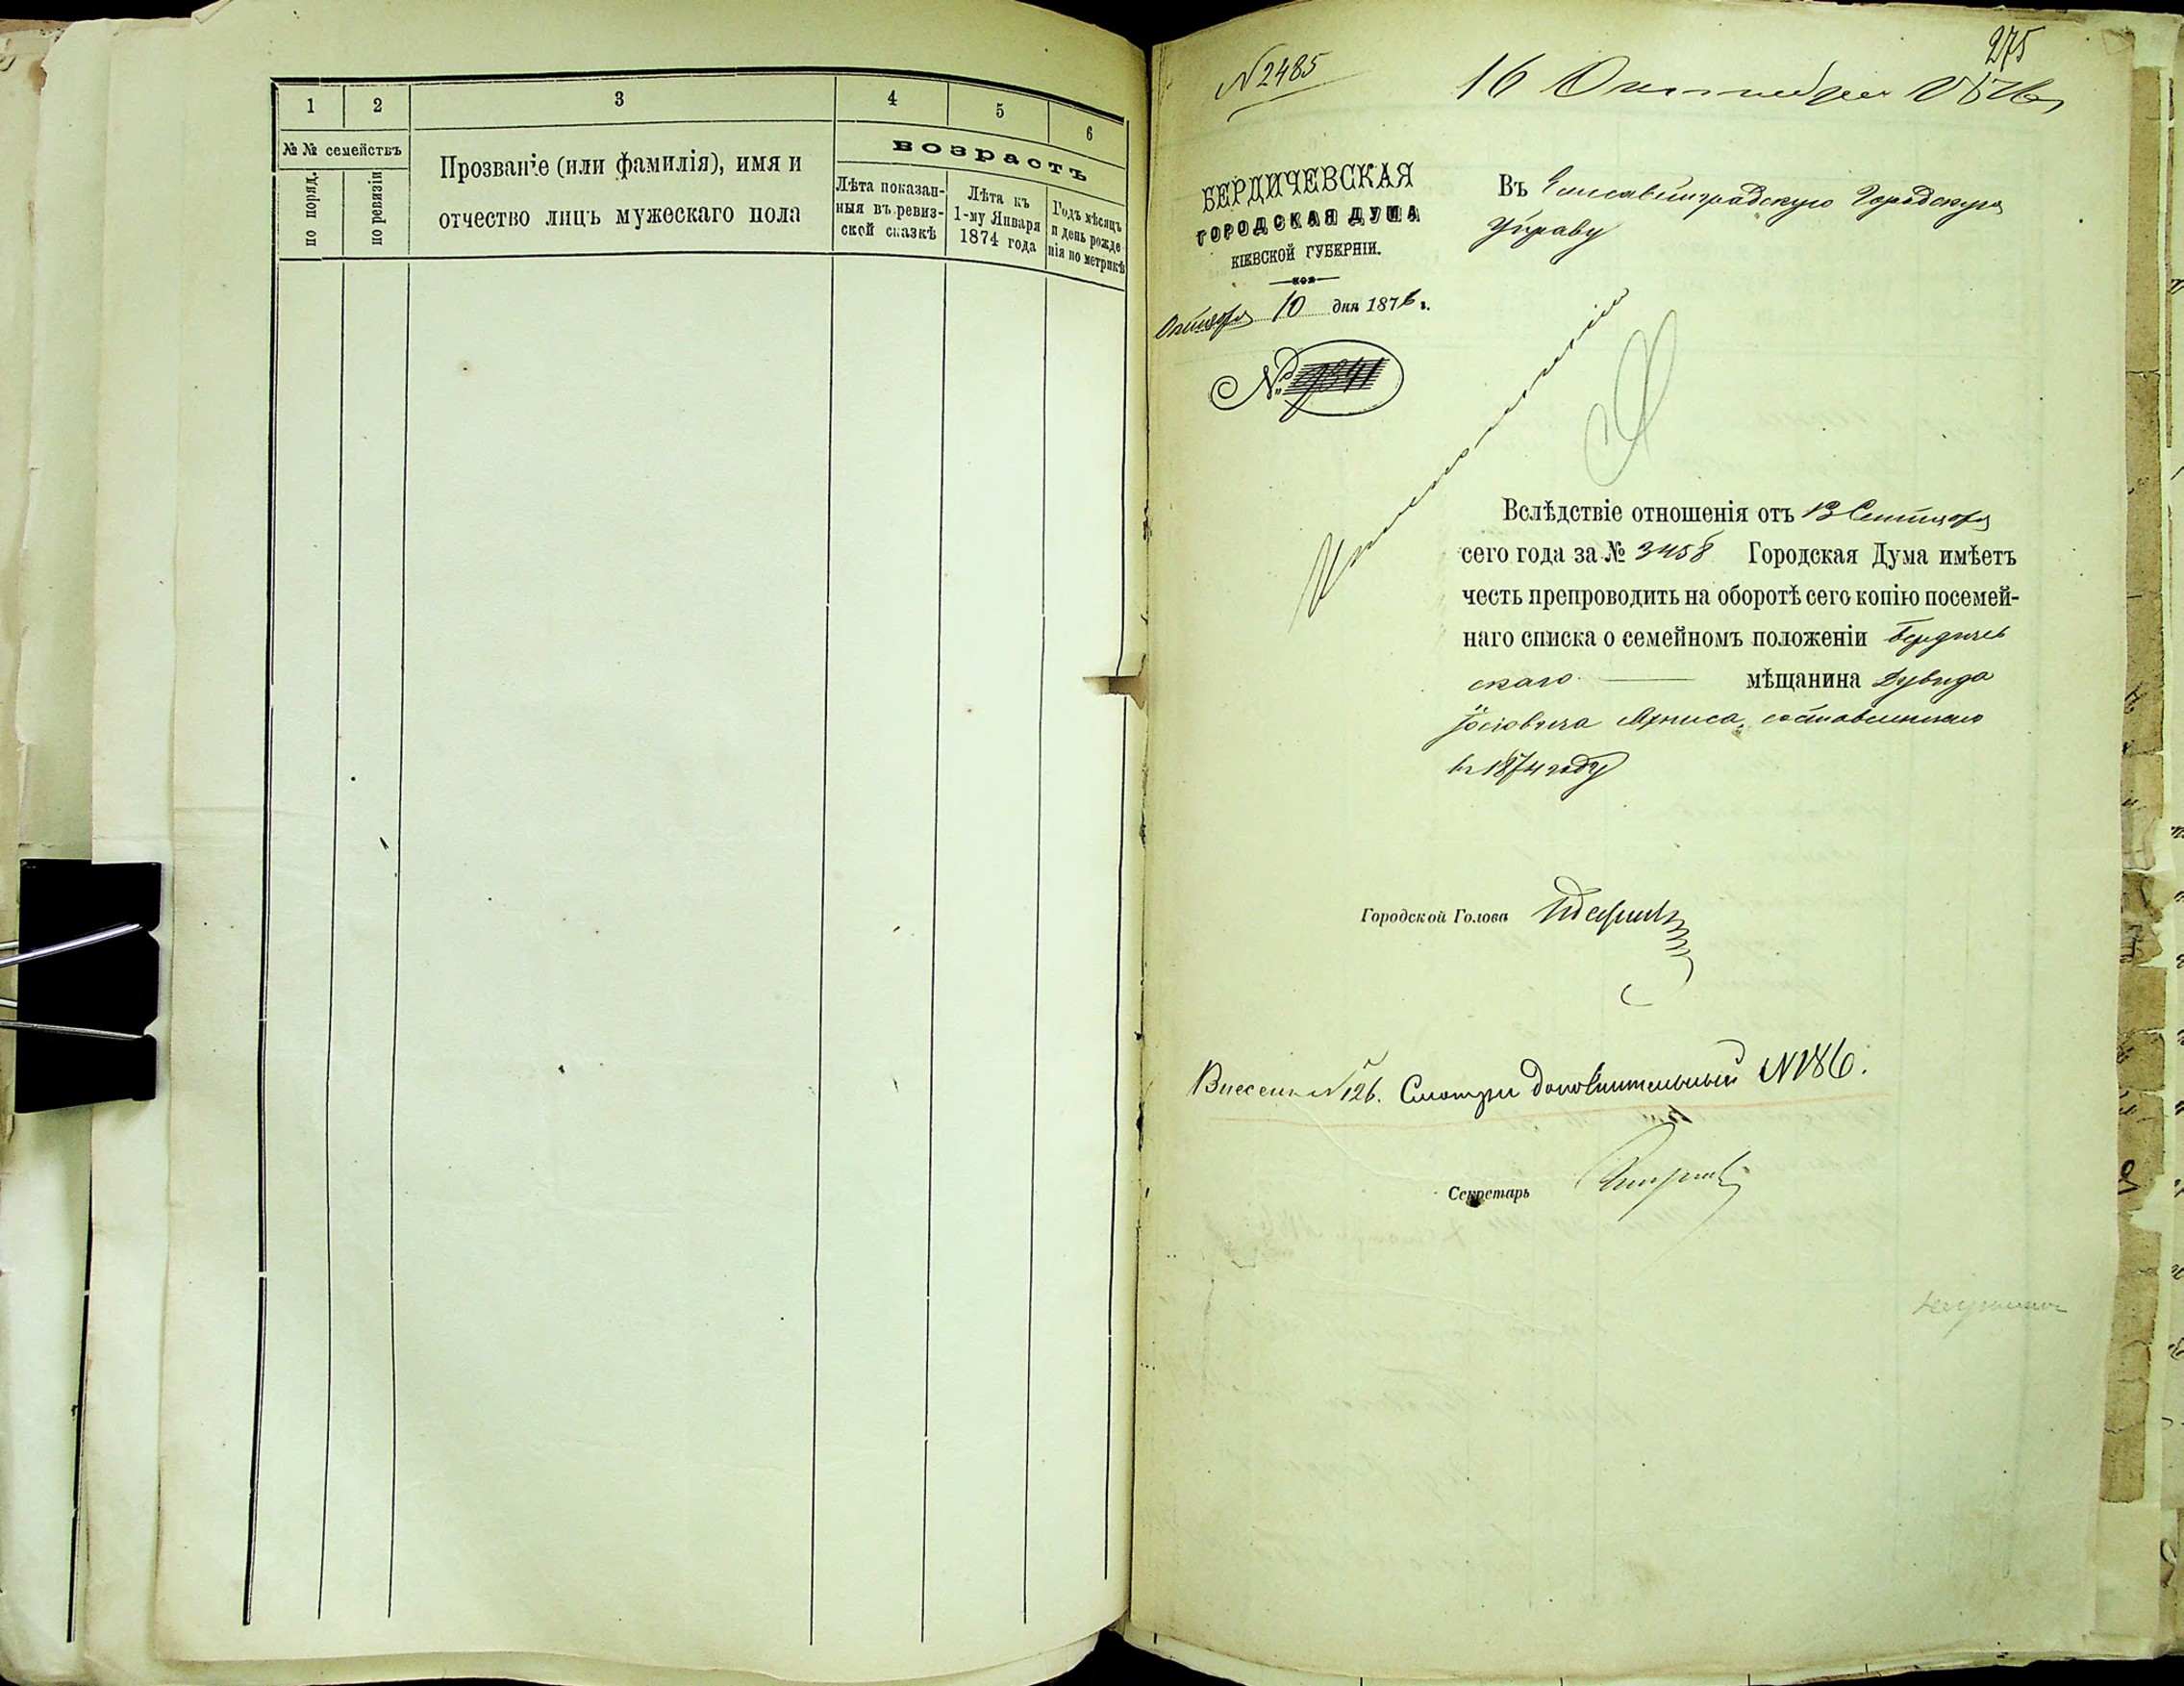 1 2 3 4 5 6
№ № семействъ
по поряд.
по ревизіи
Прозваніе (или фамилія), имя и
отчество лицъ мужескаго пола
возрастъ
Лѣта показан-
ныя въ ревиз-
ской сказкѣ
Лѣта къ
1-му Января
1874 года
Годъ мѣсяцъ
и день рожде
нія по метрикѣ
275
N 2485
16 Октября 1876
БЕРДИЧЕВСКАЯ
ГОРОДСКАЯ ДУМА
КІЕВСКОЙ ГУБЕРНІИ.
Октября 10 дня 1876 г.
№
Въ Елисаветградскую Городскую
Управу
Вслѣдствіе отношенія отъ 13 Сентября
сего года за № 3458 Городская Дума имѣетъ
честь препроводить на оборотѣ сего копію посемей-
наго списка о семейномъ положеніи Бердичев
скаго мѣщанина Дувида
Іосіовича составленнаго
въ 1874 году
Городской Голова
Внесено N 126. Смотри дополнительный N 186.
Секретарь